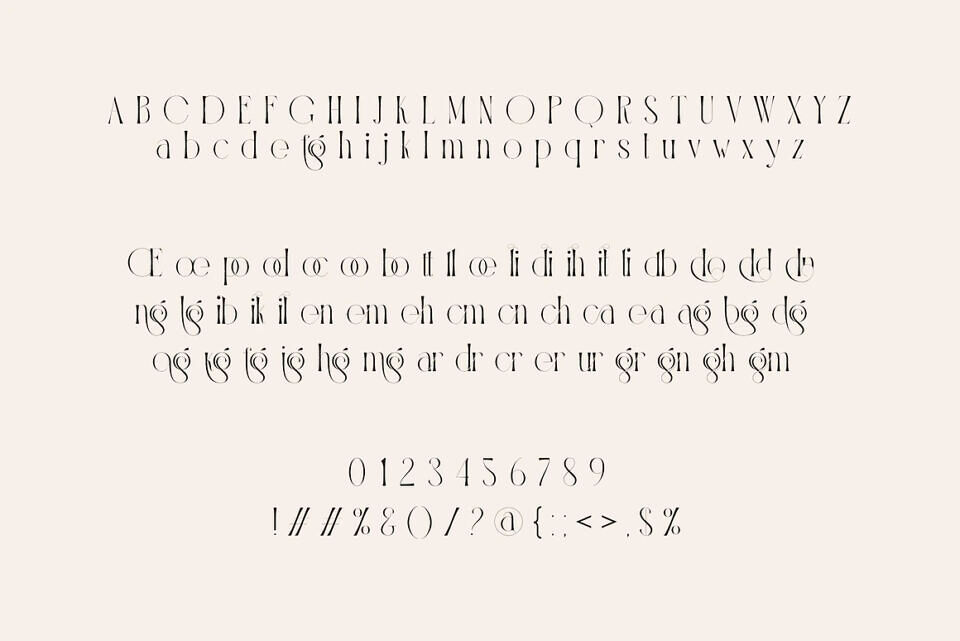 A B C D E F G H I J K L M N O P Q R S T U V W X Y Z
a b c d e fg h i j k l m n o p q r s t u v w x y z
Œ œ po od oc oo bo tt ll oe li di ih it ti db do dd
ng lg ib ik il en em eh cm cn ch ca ea ag bg dg
qg ug tg ig hg mg ar dr cr er ur gr gn gh gm
0 1 2 3 4 5 6 7 8 9
! / / / / % & ( ) / ? @ { : ; < > . $ %